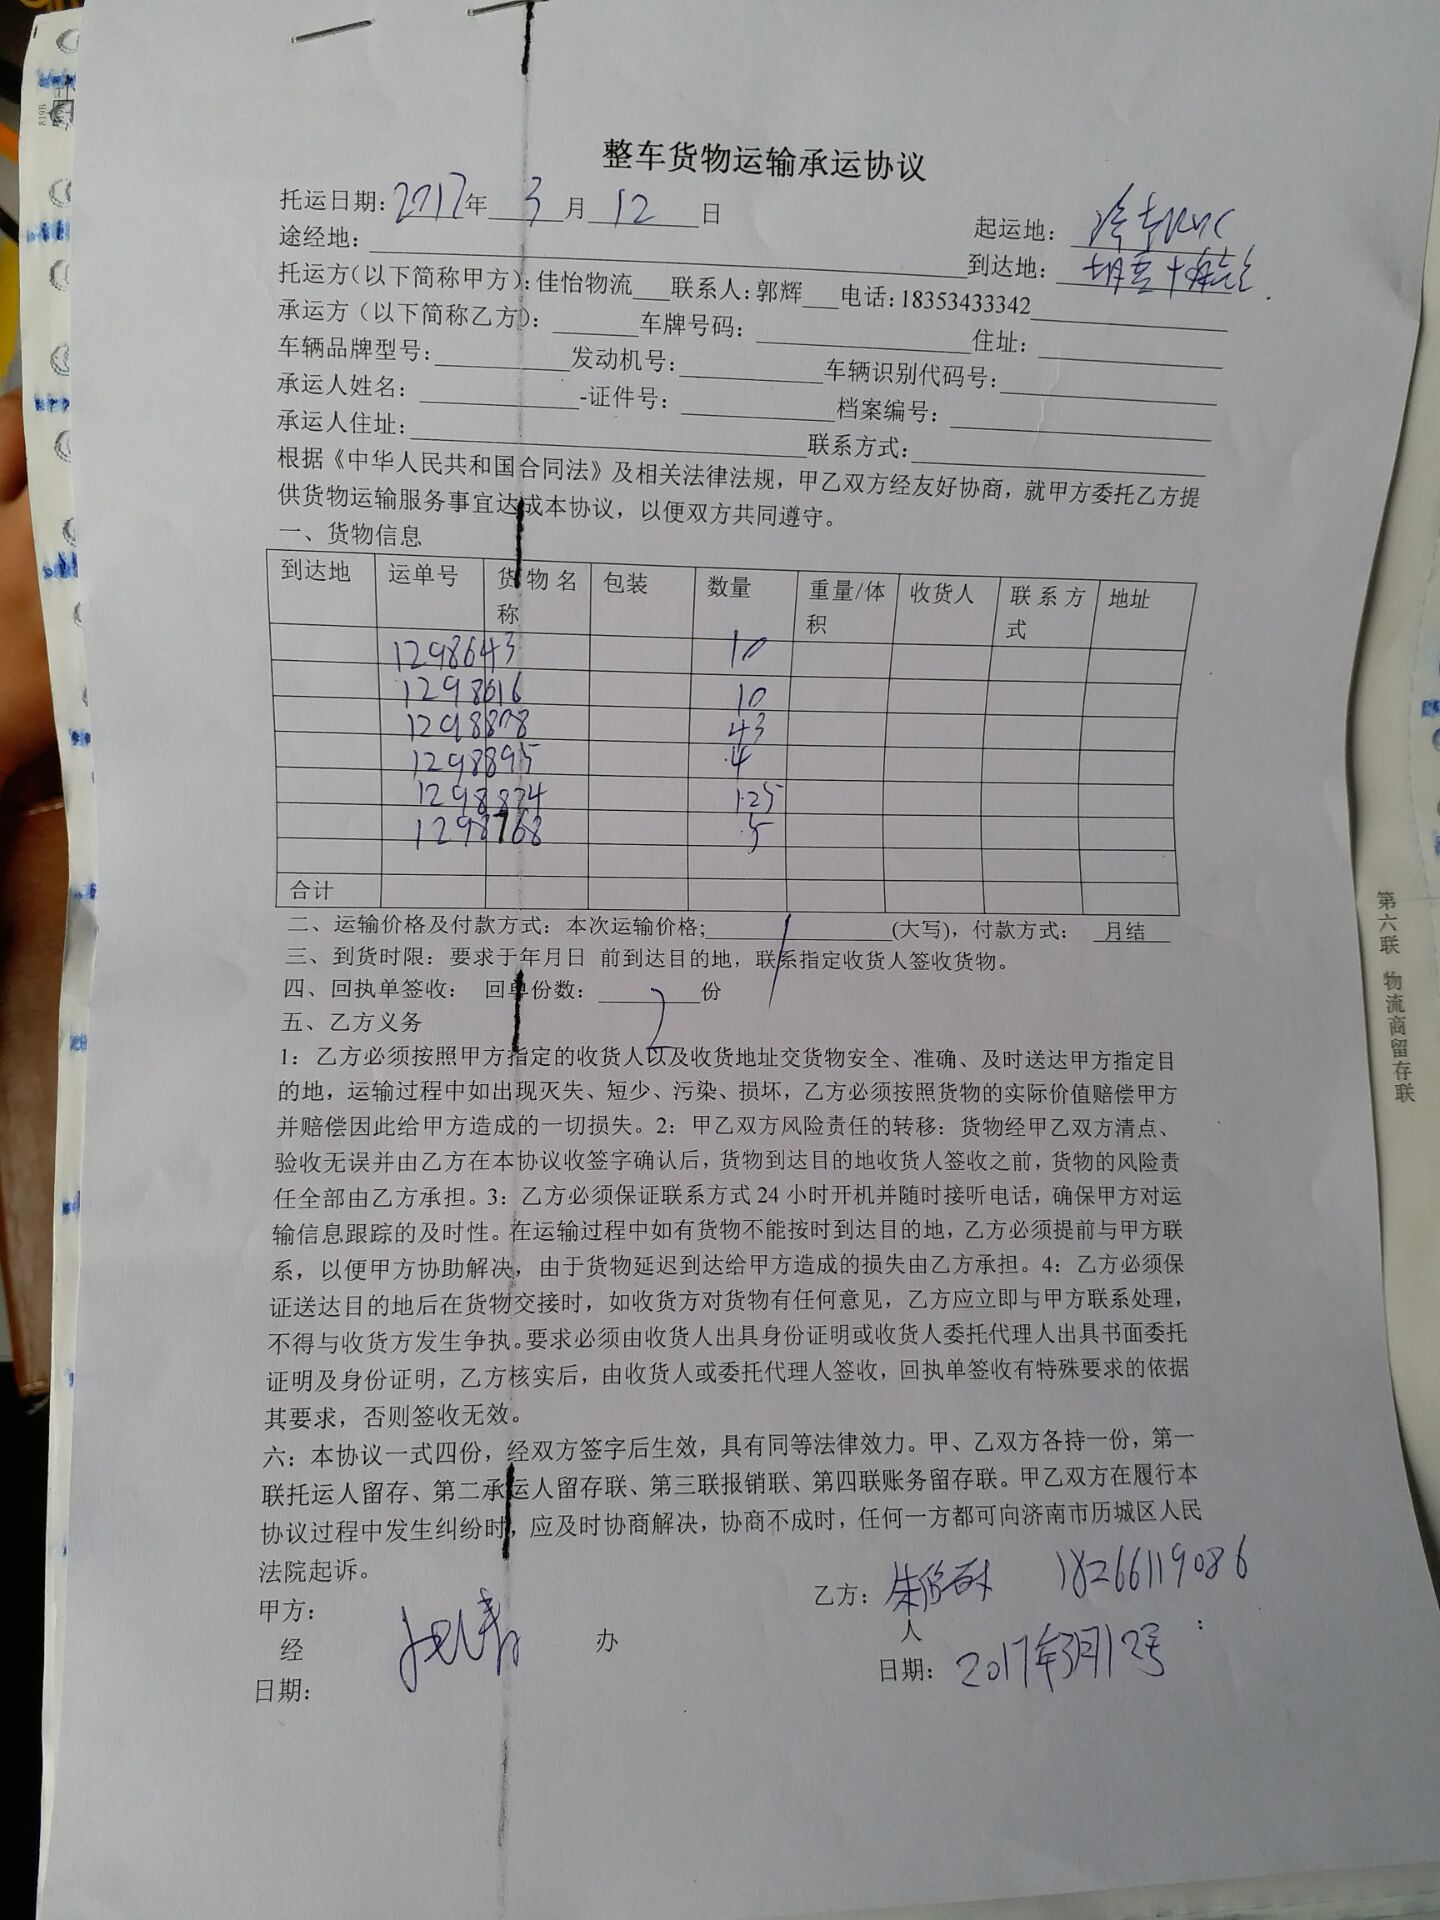 整车货物运输承运协议
托运日期:2017年 3 月 12 日
起运地:
途经地:
到达地:
托运方(以下简称甲方):佳怡物流 联系人:郭辉 电话:18353433342
承运方(以下简称乙方): 车牌号码: 住址:
车辆品牌型号: 发动机号: 车辆识别代码号:
承运人姓名: -证件号: 档案编号:
承运人住址: 联系方式:
根据《中华人民共和国合同法》及相关法律法规，甲乙双方经友好协商，就甲方委托乙方提
供货物运输服务事宜达成本协议，以便双方共同遵守。
一、货物信息
到达地 运单号 货物名称 包装 数量 重量/体积 收货人 联系方式 地址
1298643 10
1298616 10
1298878 43
1298895 4
1298834 1.25
1298768 5
合计
二、运输价格及付款方式：本次运输价格; (大写)，付款方式： 月结
三、到货时限：要求于年月日 前到达目的地，联系指定收货人签收货物。
四、回执单签收： 回单份数： 2 份
五、乙方义务
1：乙方必须按照甲方指定的收货人以及收货地址交货物安全、准确、及时送达甲方指定目
的地，运输过程中如出现灭失、短少、污染、损坏，乙方必须按照货物的实际价值赔偿甲方
并赔偿因此给甲方造成的一切损失。2：甲乙双方风险责任的转移：货物经甲乙双方清点、
验收无误并由乙方在本协议收签字确认后，货物到达目的地收货人签收之前，货物的风险责
任全部由乙方承担。3：乙方必须保证联系方式24小时开机并随时接听电话，确保甲方对运
输信息跟踪的及时性。在运输过程中如有货物不能按时到达目的地，乙方必须提前与甲方联
系，以便甲方协助解决，由于货物延迟到达给甲方造成的损失由乙方承担。4：乙方必须保
证送达目的地后在货物交接时，如收货方对货物有任何意见，乙方应立即与甲方联系处理，
不得与收货方发生争执。要求必须由收货人出具身份证明或收货人委托代理人出具书面委托
证明及身份证明，乙方核实后，由收货人或委托代理人签收，回执单签收有特殊要求的依据
其要求，否则签收无效。
六：本协议一式四份，经双方签字后生效，具有同等法律效力。甲、乙双方各持一份，第一
联托运人留存、第二承运人留存联、第三联报销联、第四联账务留存联。甲乙双方在履行本
协议过程中发生纠纷时，应及时协商解决，协商不成时，任何一方都可向济南市历城区人民
法院起诉。
甲方： 乙方： 18266119086
经 办 人 ：
日期： 日期：2017年3月12号
第六联 物流商留存联
819B